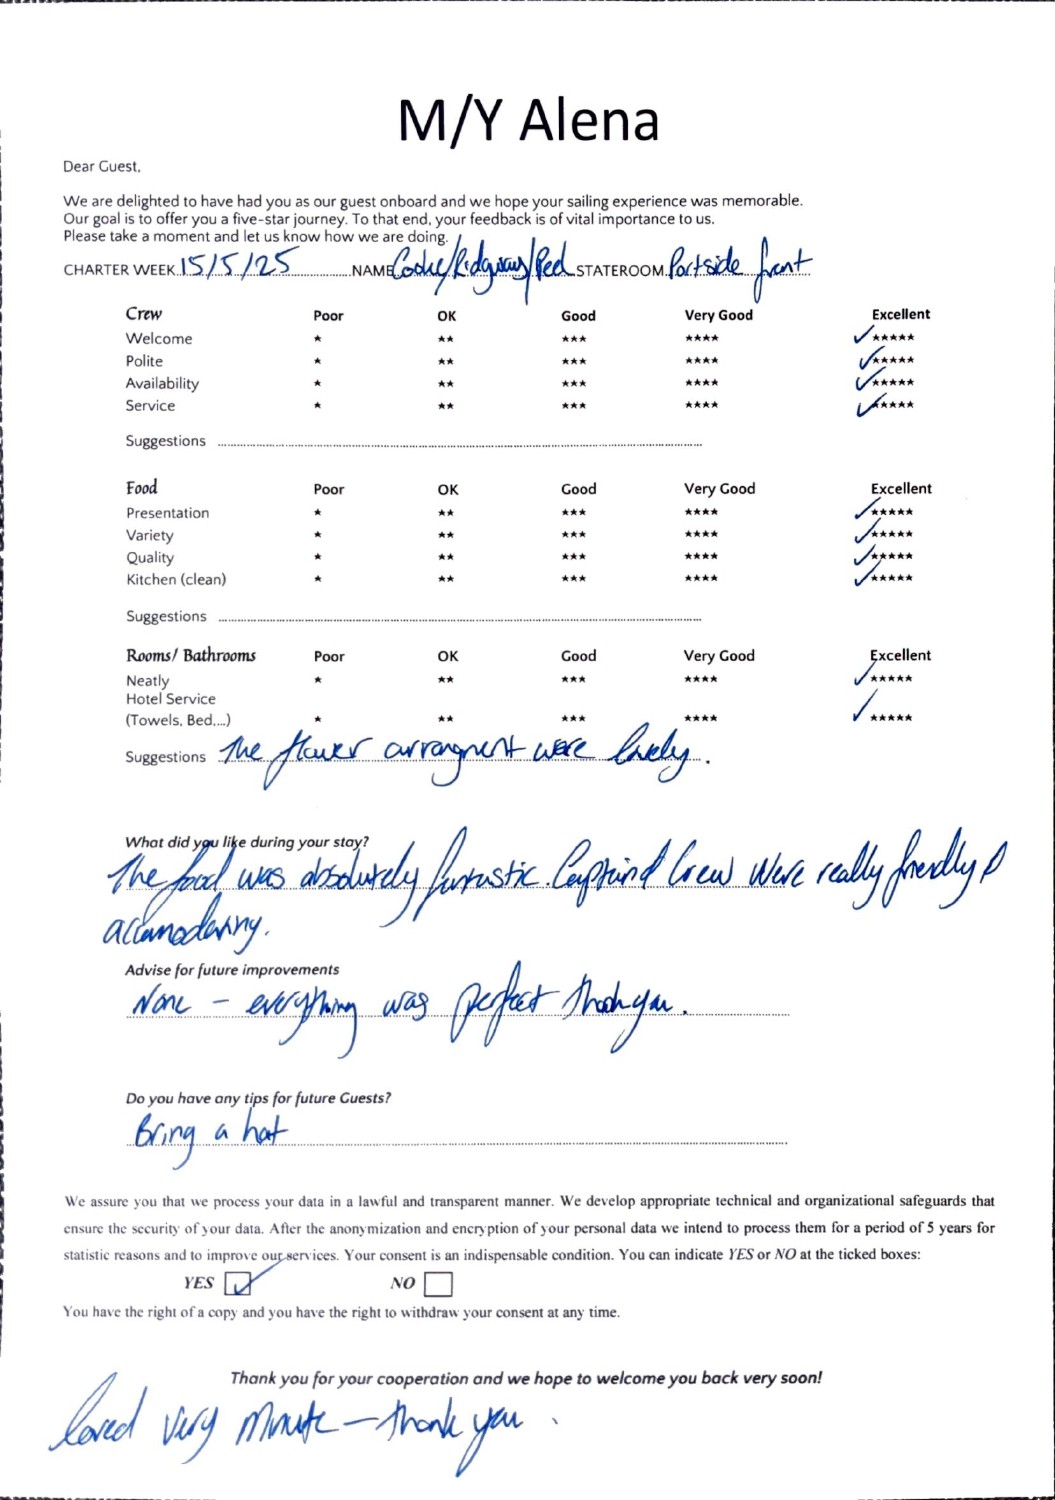 M/Y Alena
Dear Guest,
We are delighted to have had you as our guest onboard and we hope your sailing experience was memorable.
Our goal is to offer you a five-star journey. To that end, your feedback is of vital importance to us.
Please take a moment and let us know how we are doing.
CHARTER WEEK 15/5/25 NAME /Ridgway/ STATEROOM Portside front
Crew Poor OK Good Very Good Excellent
Welcome * ** *** **** ✓*****
Polite * ** *** **** ✓*****
Availability * ** *** **** ✓*****
Service * ** *** **** ✓*****
Suggestions
Food Poor OK Good Very Good Excellent
Presentation * ** *** **** ✓*****
Variety * ** *** **** ✓*****
Quality * ** *** **** ✓*****
Kitchen (clean) * ** *** **** ✓*****
Suggestions
Rooms/ Bathrooms Poor OK Good Very Good Excellent
Neatly * ** *** **** ✓*****
Hotel Service
(Towels, Bed....) * ** *** **** ✓*****
Suggestions The flower arrangment were lovely.
What did you like during your stay?
The food was absolutely fantastic. Captain & Crew were really friendly &
accomodating.
Advise for future improvements
None - everything was perfect thank you.
Do you have any tips for future Guests?
Bring a hat
We assure you that we process your data in a lawful and transparent manner. We develop appropriate technical and organizational safeguards that
ensure the security of your data. After the anonymization and encryption of your personal data we intend to process them for a period of 5 years for
statistic reasons and to improve our services. Your consent is an indispensable condition. You can indicate YES or NO at the ticked boxes:
YES ✓ NO
You have the right of a copy and you have the right to withdraw your consent at any time.
Thank you for your cooperation and we hope to welcome you back very soon!
loved very minute - thank you.